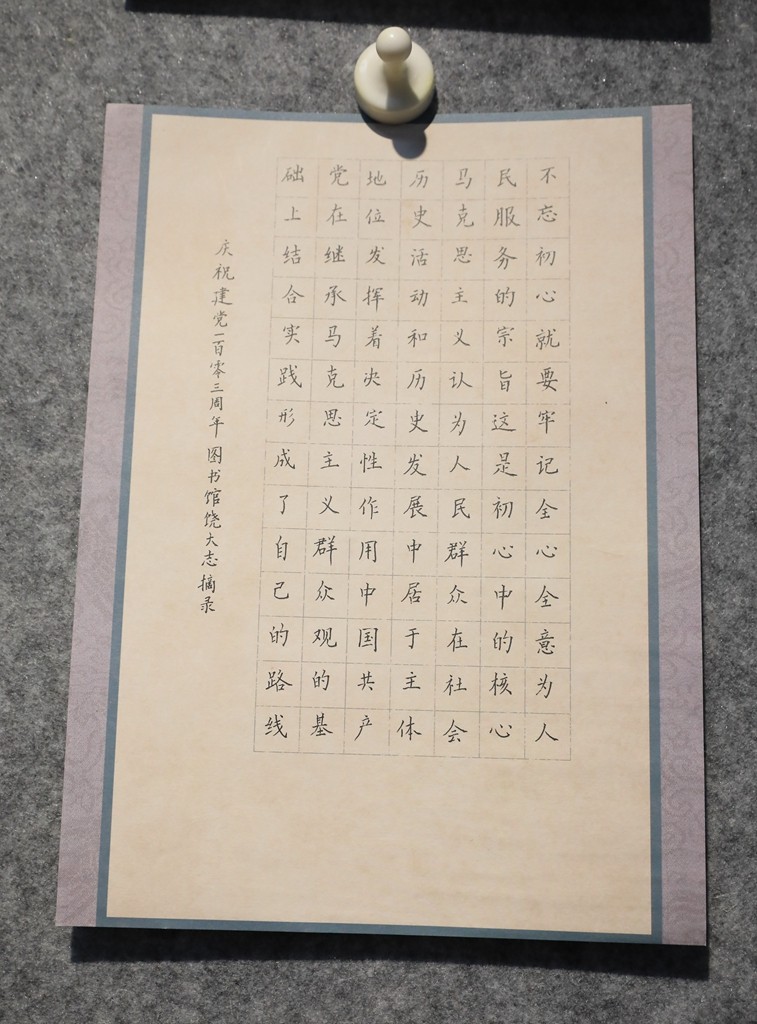 不忘初心就要牢记全心全意为人
民服务的宗旨这是初心中的核心
马克思主义认为人民群众在社会
历史活动和历史发展中居于主体
地位发挥着决定性作用中国共产
党在继承马克思主义群众观的基
础上结合实践形成了自己的路线
庆祝建党一百零三周年 图书馆饶大志摘录